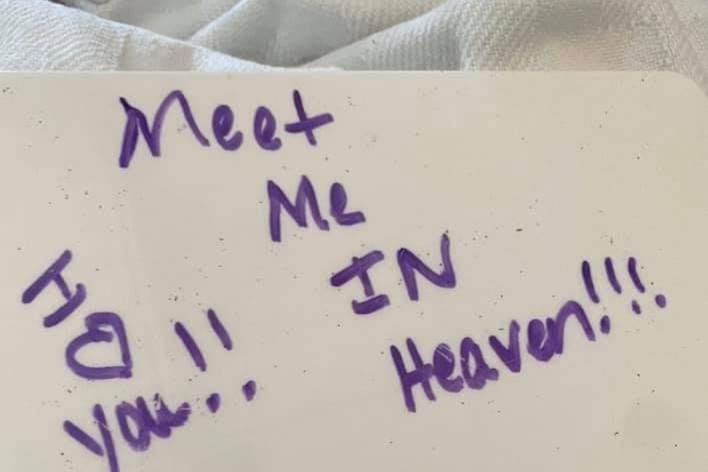 Meet
Me
IN
Heaven!!!
I
♡
you!!